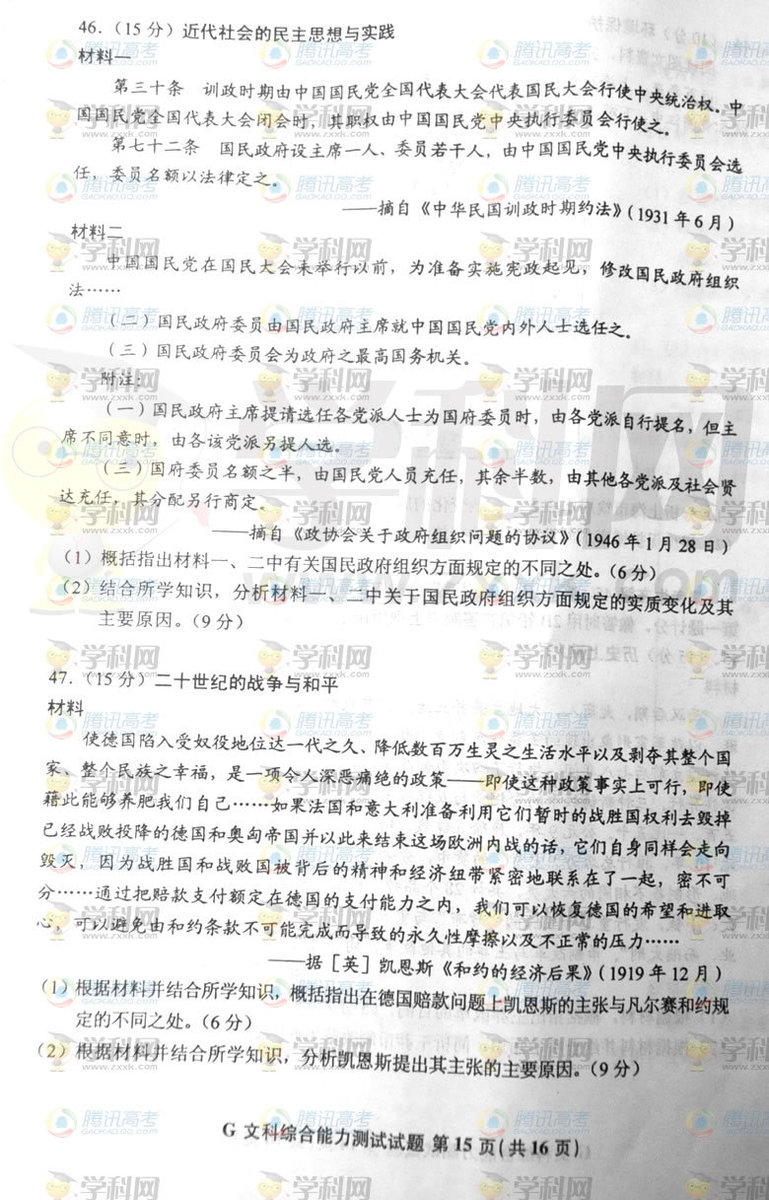 46．（15 分）近代社会的民主思想与实践
材料一
第三十条　训政时期由中国国民党全国代表大会代表国民大会行使中央统治权。中
国国民党全国代表大会闭会时，其职权由中国国民党中央执行委员会行使之。
第七十二条　国民政府设主席一人、委员若干人，由中国国民党中央执行委员会选
任，委员名额以法律定之。
——摘自《中华民国训政时期约法》（1931 年 6 月）
材料二
中国国民党在国民大会未举行以前，为准备实施宪政起见，修改国民政府组织
法……
（二）国民政府委员由国民政府主席就中国国民党内外人士选任之。
（三）国民政府委员会为政府之最高国务机关。
附注：
（一）国民政府主席提请选任各党派人士为国府委员时，由各党派自行提名，但主
席不同意时，由各该党派另提人选。
（三）国府委员名额之半，由国民党人员充任，其余半数，由其他各党派及社会贤
达充任，其分配另行商定。
——摘自《政协会关于政府组织问题的协议》（1946 年 1 月 28 日）
（1）概括指出材料一、二中有关国民政府组织方面规定的不同之处。（6 分）
（2）结合所学知识，分析材料一、二中关于国民政府组织方面规定的实质变化及其
主要原因。（9 分）
47．（15 分）二十世纪的战争与和平
材料
使德国陷入受奴役地位达一代之久、降低数百万生灵之生活水平以及剥夺其整个国
家、整个民族之幸福，是一项令人深恶痛绝的政策——即使这种政策事实上可行，即使
藉此能够养肥我们自己……如果法国和意大利准备利用它们暂时的战胜国权利去毁掉
已经战败投降的德国和奥匈帝国并以此来结束这场欧洲内战的话，它们自身同样会走向
毁灭，因为战胜国和战败国被背后的精神和经济纽带紧密地联系在了一起，密不可
分……通过把赔款支付额定在德国的支付能力之内，我们可以恢复德国的希望和进取
心，可以避免由和约条款不可能完成而导致的永久性摩擦以及不正常的压力……
——据［英］凯恩斯《和约的经济后果》（1919 年 12 月）
（1）根据材料并结合所学知识，概括指出在德国赔款问题上凯恩斯的主张与凡尔赛和约规
定的不同之处。（6 分）
（2）根据材料并结合所学知识，分析凯恩斯提出其主张的主要原因。（9 分）
G 文科综合能力测试试题 第 15 页（共 16 页）